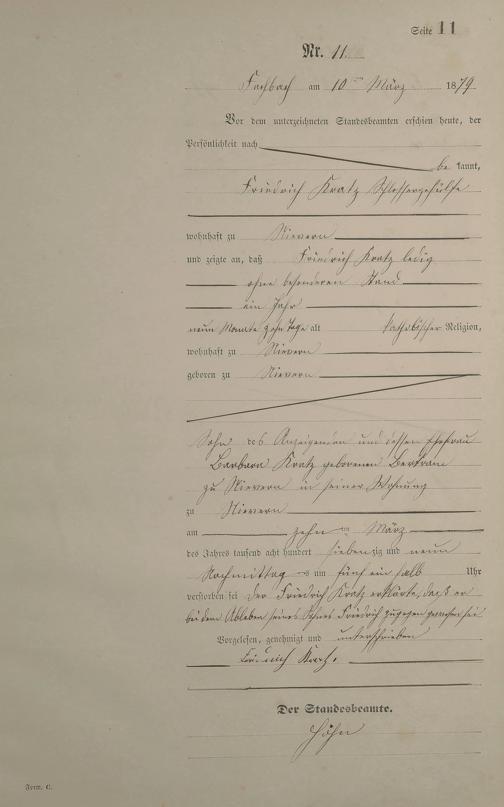 Seite 11
Nr. 11.
Fachbach am 10ten März 1879
Vor dem unterzeichneten Standesbeamten erschien heute, der
Persönlichkeit nach
be kannt,
Friedrich Kratz Schlossergehülfe
wohnhaft zu Nievern
und zeigte an, daß Friedrich Kratz ledig
ohne besonderen Stand
ein Jahr
neun Monate zehn Tage alt katholischer Religion,
wohnhaft zu Nievern
geboren zu Nievern
Sohn des Anzeigenden und dessen Ehefrau
Barbara Kratz geborenen Bertram
zu Nievern in seiner Wohnung
zu Nievern
am zehn ten März
des Jahres tausend acht hundert sieben zig und neun
Nachmittag s um fünf ein halb Uhr
verstorben sei Der Friedrich Kratz erklärte, daß er
bei dem Ableben seines Sohnes Friedrich zugegen gewesen sei
Vorgelesen, genehmigt und unterschrieben
Friedrich Kratz.
Der Standesbeamte.
Höhn
Form. C.